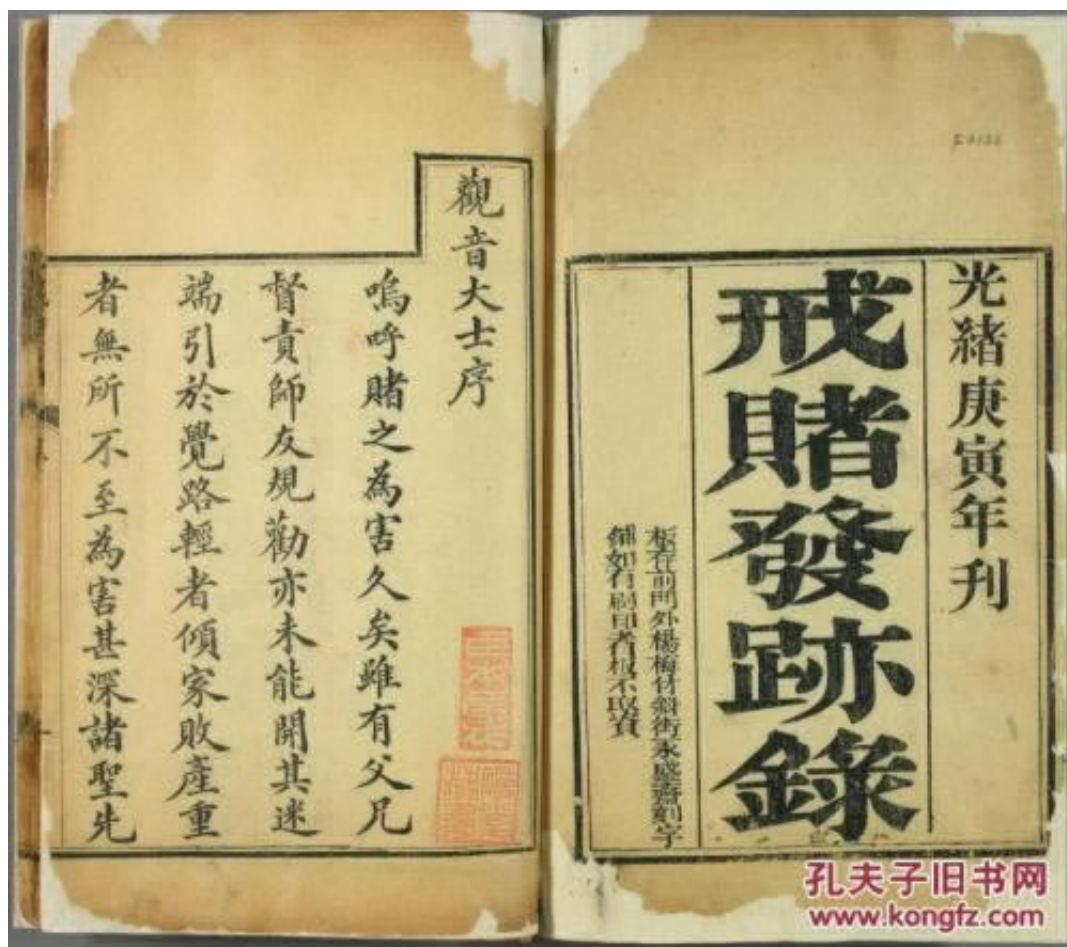 光緒庚寅年刊
戒賭發跡錄
板在前門外楊梅竹斜街永盛齋刻字
鋪如有刷印者板不取資
觀音大士序
嗚呼賭之為害久矣雖有父兄
督責師友規勸亦未能開其迷
端引於覺路輕者傾家敗產重
者無所不至為害甚深諸聖先
孔夫子旧书网
www.kongfz.com